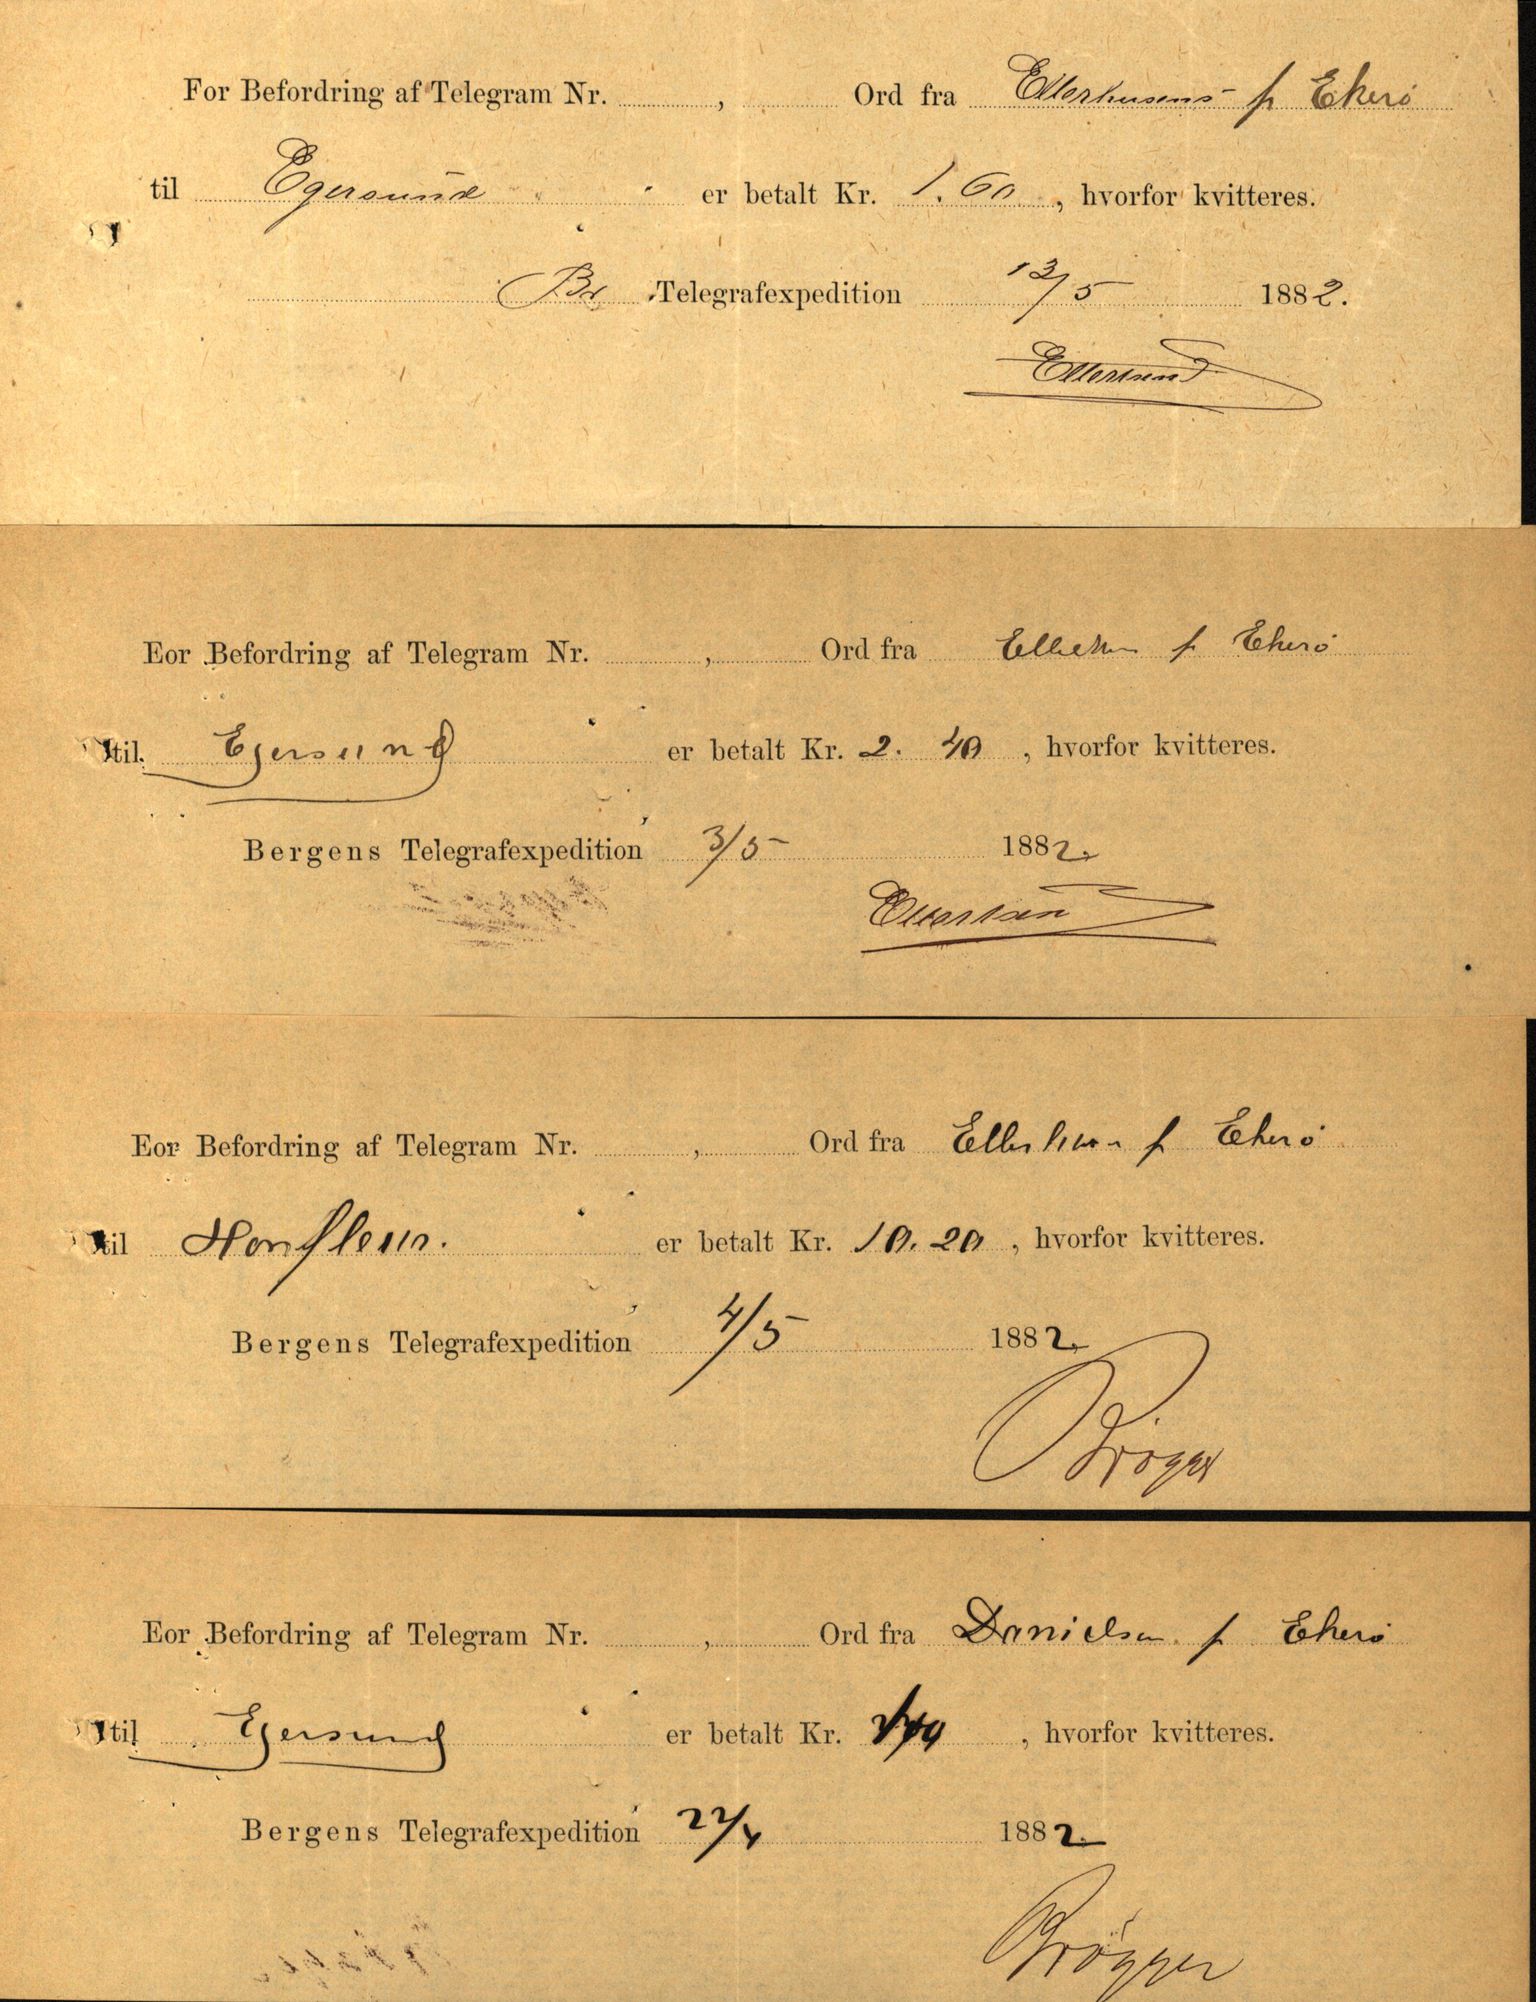 For Befordring af Telegram Nr. , Ord fra Ellerhusens f Ekerö
til Egersund er betalt Kr. 1.60, hvorfor kvitteres.
Br Telegrafexpedition 12/5 1882.
Ellertsen
Eor Befordring af Telegram Nr. , Ord fra f Ekerö
til Egersund er betalt Kr. 2.40, hvorfor kvitteres.
Bergens Telegrafexpedition 3/5 1882.
Ellertsen
Eor Befordring af Telegram Nr. , Ord fra Ellerhusen f Ekerö
til Honfleur. er betalt Kr. 10.20, hvorfor kvitteres.
Bergens Telegrafexpedition 4/5 1882.
Brögger
Eor Befordring af Telegram Nr. , Ord fra Danielsen f Ekerö
til Egersund er betalt Kr. , hvorfor kvitteres.
Bergens Telegrafexpedition 22/4 1882.
Brögger